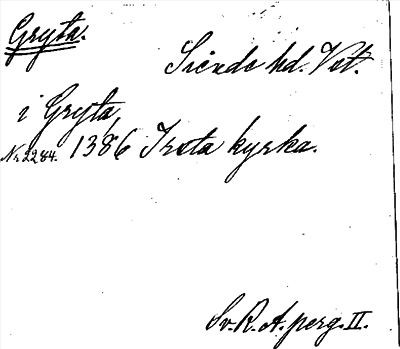 Gryta.
Siende hd. Vst.
i Gryta,
Nr 2284. 1386 Irsta kyrka.
Sv. R. A. perg. II.